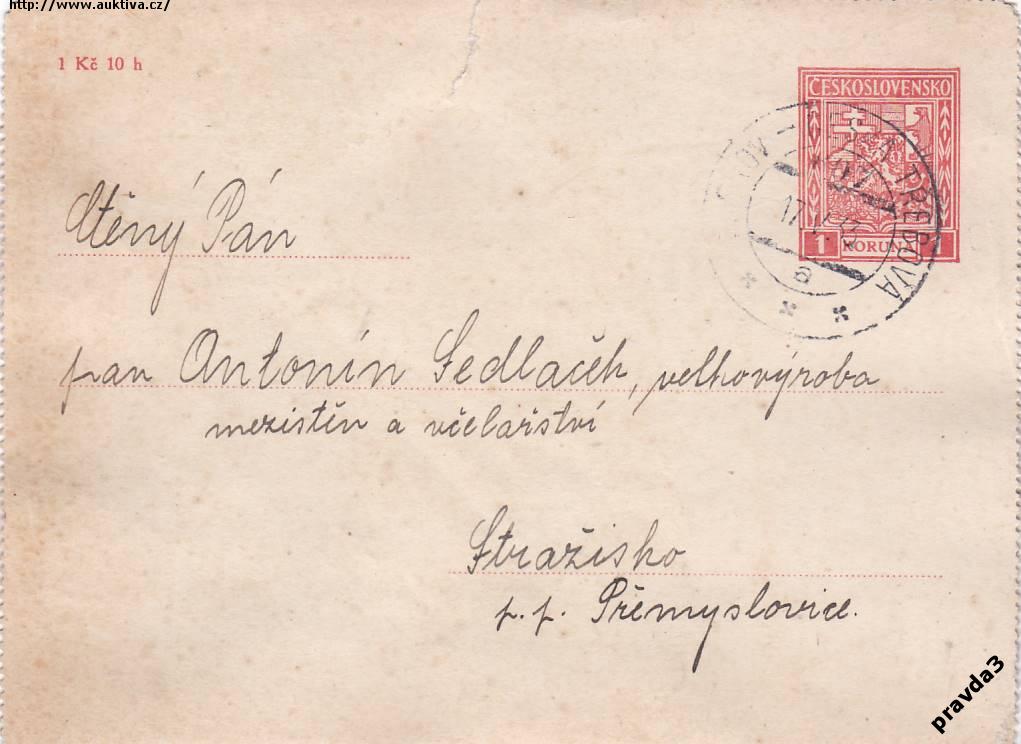 http://www.auktiva.cz/
1 Kč 10 h
ČESKOSLOVENSKO
1 KORUNA 1
ČESKÁ TŘEBOVÁ
Ctěný Pán
pan Antonín Sedlaček, velkovýroba
mezistěn a včelařství
Stražisko
p.p. Přemyslovice.
pravda3